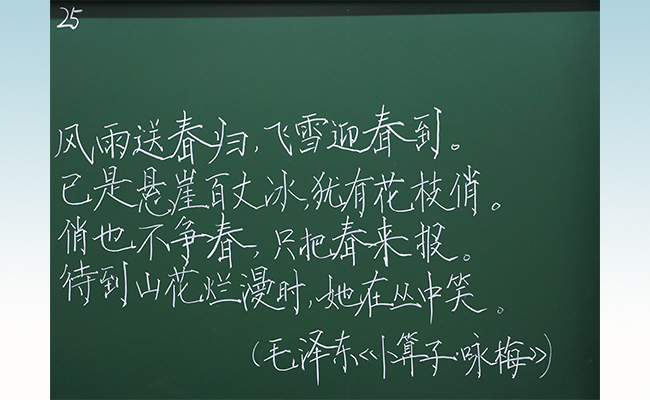 25
风雨送春归，飞雪迎春到。
已是悬崖百丈冰，犹有花枝俏。
俏也不争春，只把春来报。
待到山花烂漫时，她在丛中笑。
（毛泽东《卜算子·咏梅》）